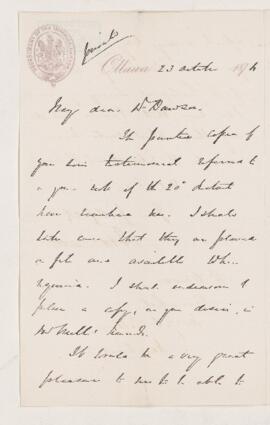 private
Ottawa 23 October 1874
My dear Dr Dawson.
The printed copies of
your testimonial referred to
in your note of the 20th instant
have reached me. I shall
take care that they are placed
on file and available when
required. I shall endeavour to
place a copy, as you desire, in
hands.
It would be a very great
pleasure to me to be able to